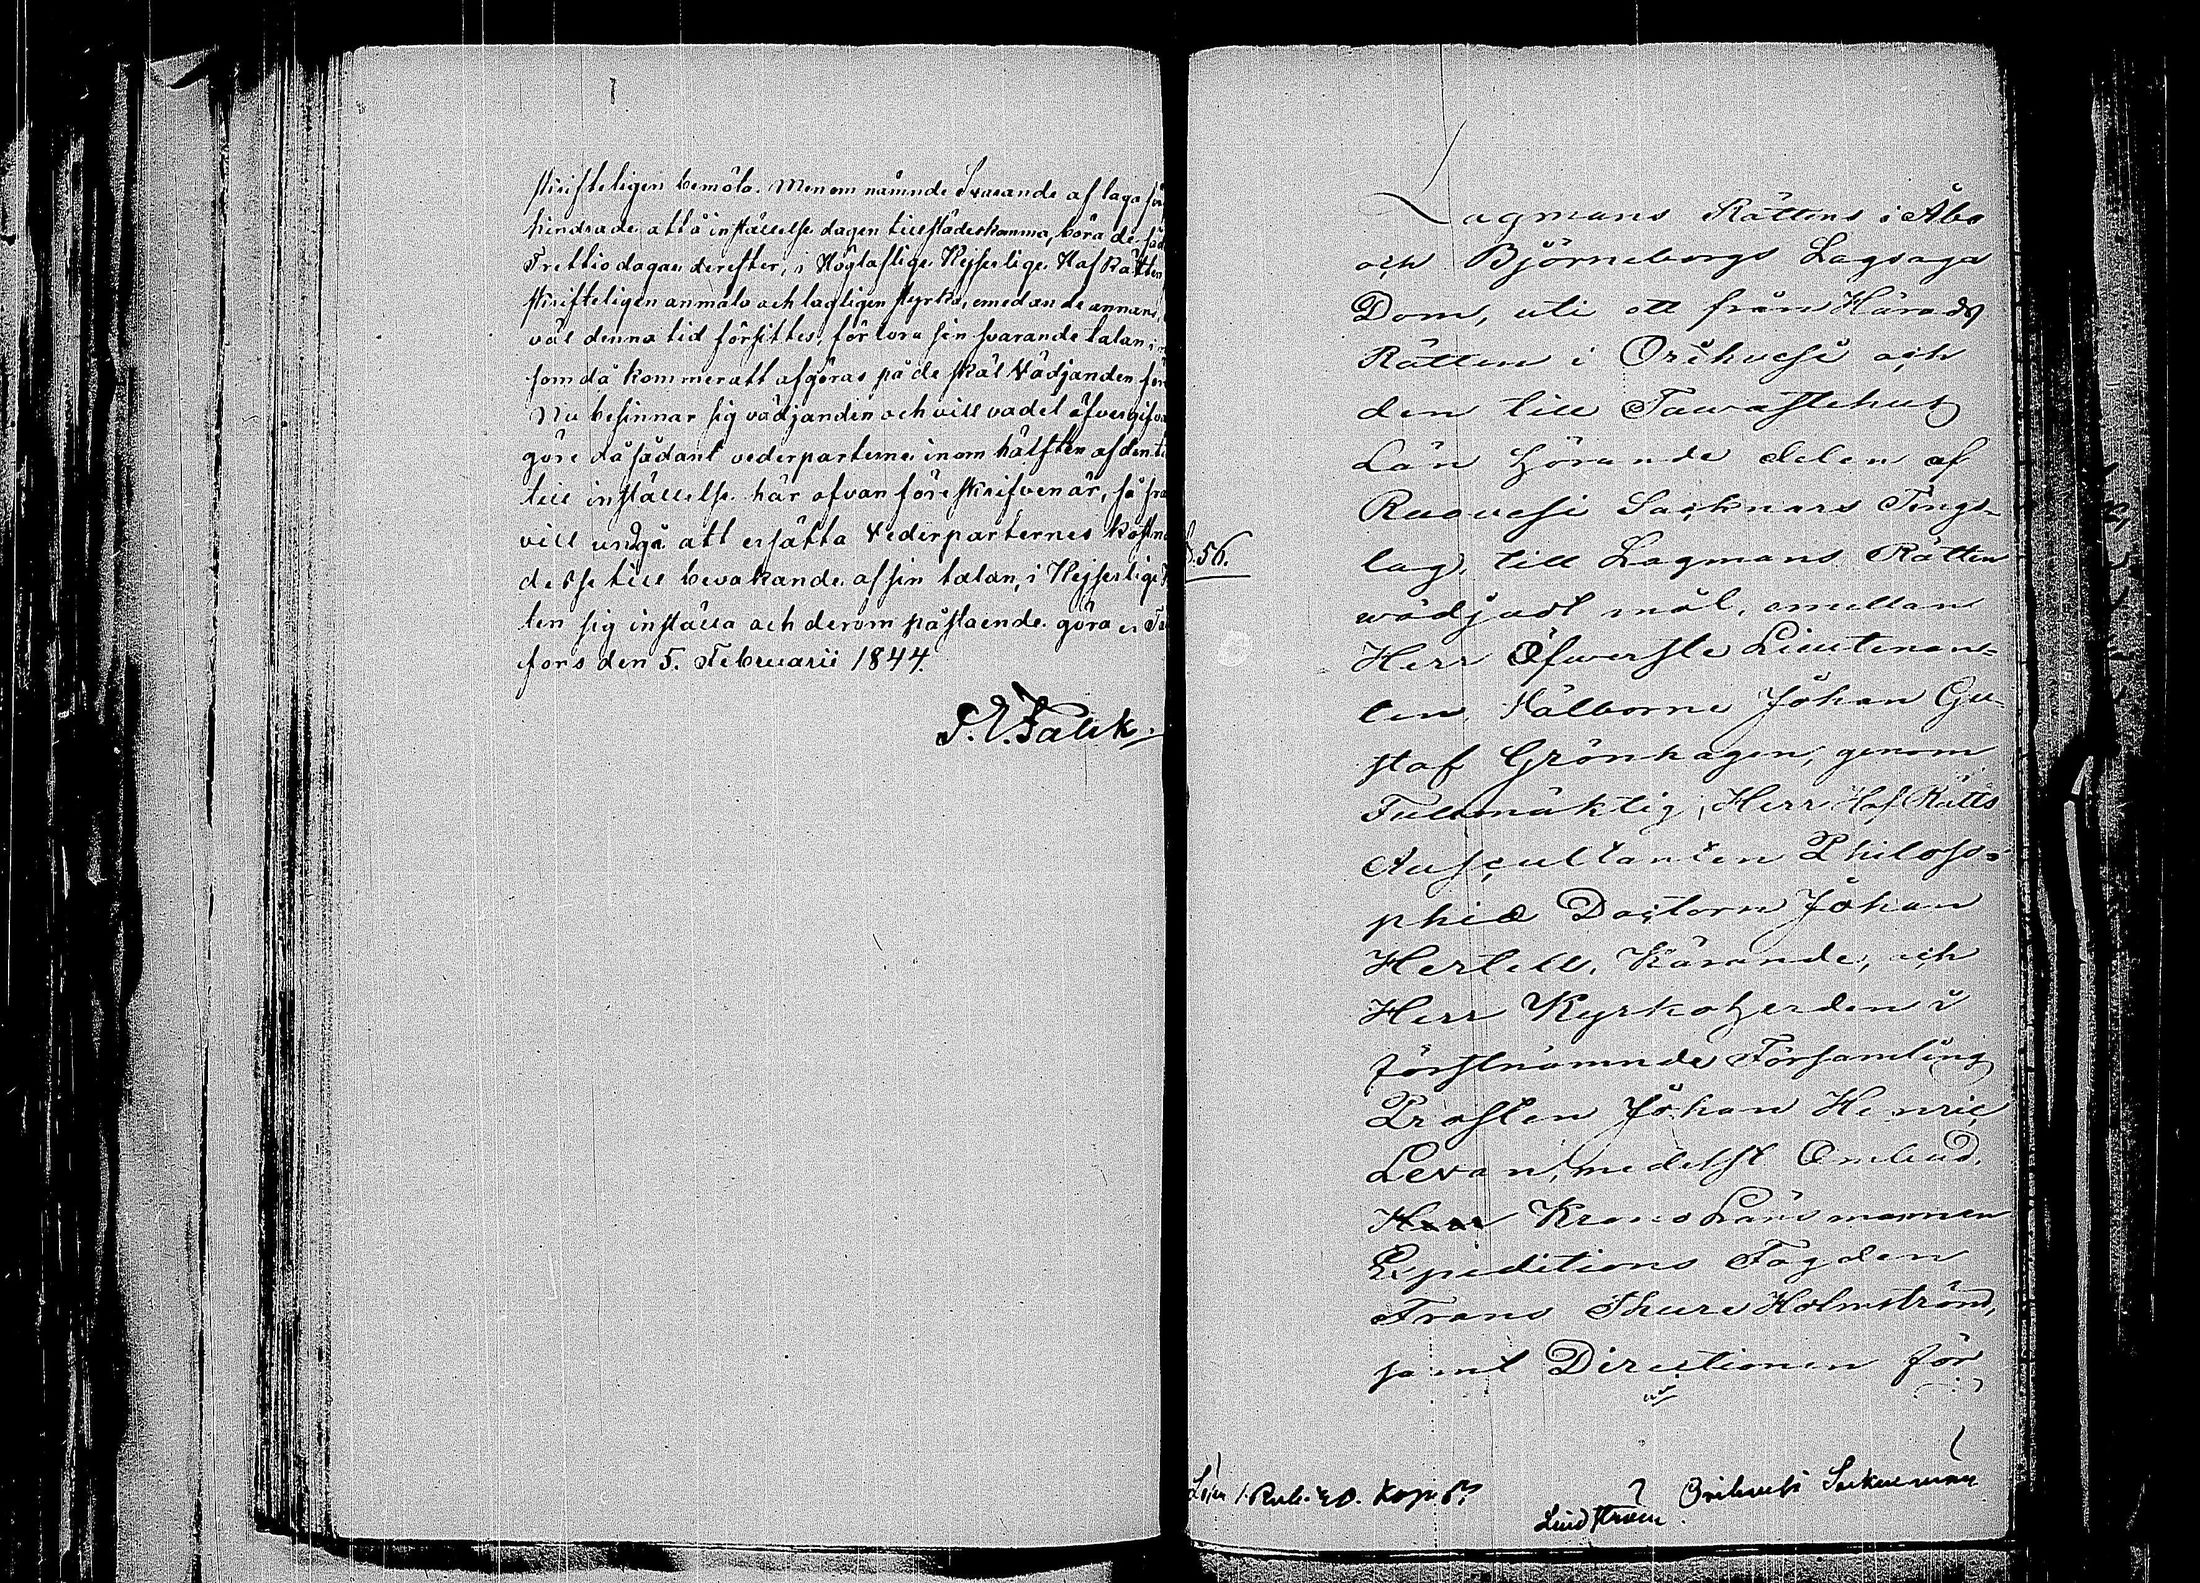 skrifteligen bemöta. Men om nämnde Svarande af laga för
hindrade att å inställelse dagen tillstädeskomma, böra de såd
Trettio dagar derefter, i Höglaflige Kejserlige Hof Rätten,
skrifteligen anmäla och lagligen styrka, emedan de annars,
väl denna tid försittes, förlora sin svarande talan i
som då kommer att afgöras på de skäl Vädjanden för
Nu besinnar sig vädjanden och vill vadet öfvergifva
göre då sådant vederparterne inom hälften af den ti
till inställelse här ofvan föreskrifven är, så fra
vill undgå att ersätta Vederparternes kostna
desse till bevakande af sin talan, i Kejserlige
ten sig inställa och derom påstående göra.
fors den 5. Februarii 1844.
J. E. Falck.
Lagmans Rättens i Åbo
och Björneborgs Lagsaga
Dom, uti ett från Härads
Rätten i Orihvesi och
den till Tawastehus
Län hörande delen af
Ruovesi Socknars Tings-
lag, till Lagmans Rätten
§.56.
wädjadt mål, emellan
Herr Öfwerste Lieutenan-
ten Wälborne Johan Gu-
staf Grönhagen, genom
Fullmäktig, Herr Hof Rätts
Auscultanten Philoso-
phie Doctorn Johan
Hertell, Kärande, och
Herr Kyrkoherden i
förstnämnde Församling
Prosten Johan Henric
Levan, medelst Ombud,
Herr Krono Länsmannen
Expeditions Fogden
Frans Thure Holmström,
samt Directionen för
Lösen 1. Rub. 20. Kop. Sr
Orihvesi Sockenmän
Lindström